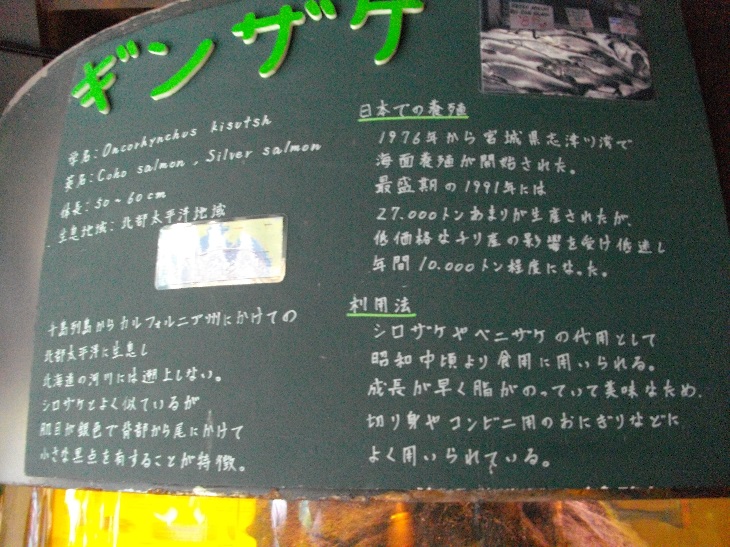 ギンザケ
学名:Oncorhynchus kisutsh
英名:Coho salmon , Silver salmon
体長:50~60cm
生息地域:北部太平洋地域
千島列島からカルフォルニア州にかけての
北部太平洋に生息し
北海道の河川には遡上しない。
シロザケとよく似ているが
肌目が銀色で背部から尾にかけて
小さな黒点を有することが特徴。
日本での養殖
1976年から宮城県志津川湾で
海面養殖が開始された。
最盛期の1991年には
27.000トンあまりが生産されたが、
低価格なチリ産の影響を受け低迷し
年間10.000トン程度になった。
利用法
シロザケやベニザケの代用として
昭和中頃より食用に用いられる。
成長が早く脂がのっていて美味なため、
切り身やコンビニ用のおにぎりなどに
よく用いられている。